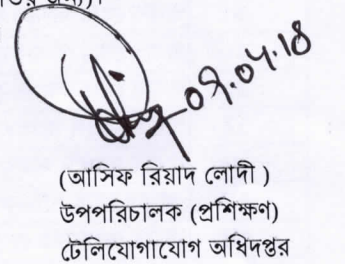 (আসিফ রিয়াদ লোদী )
উপপরিচালক (প্রশিক্ষণ)
টেলিযোগাযোগ অধিদপ্তর